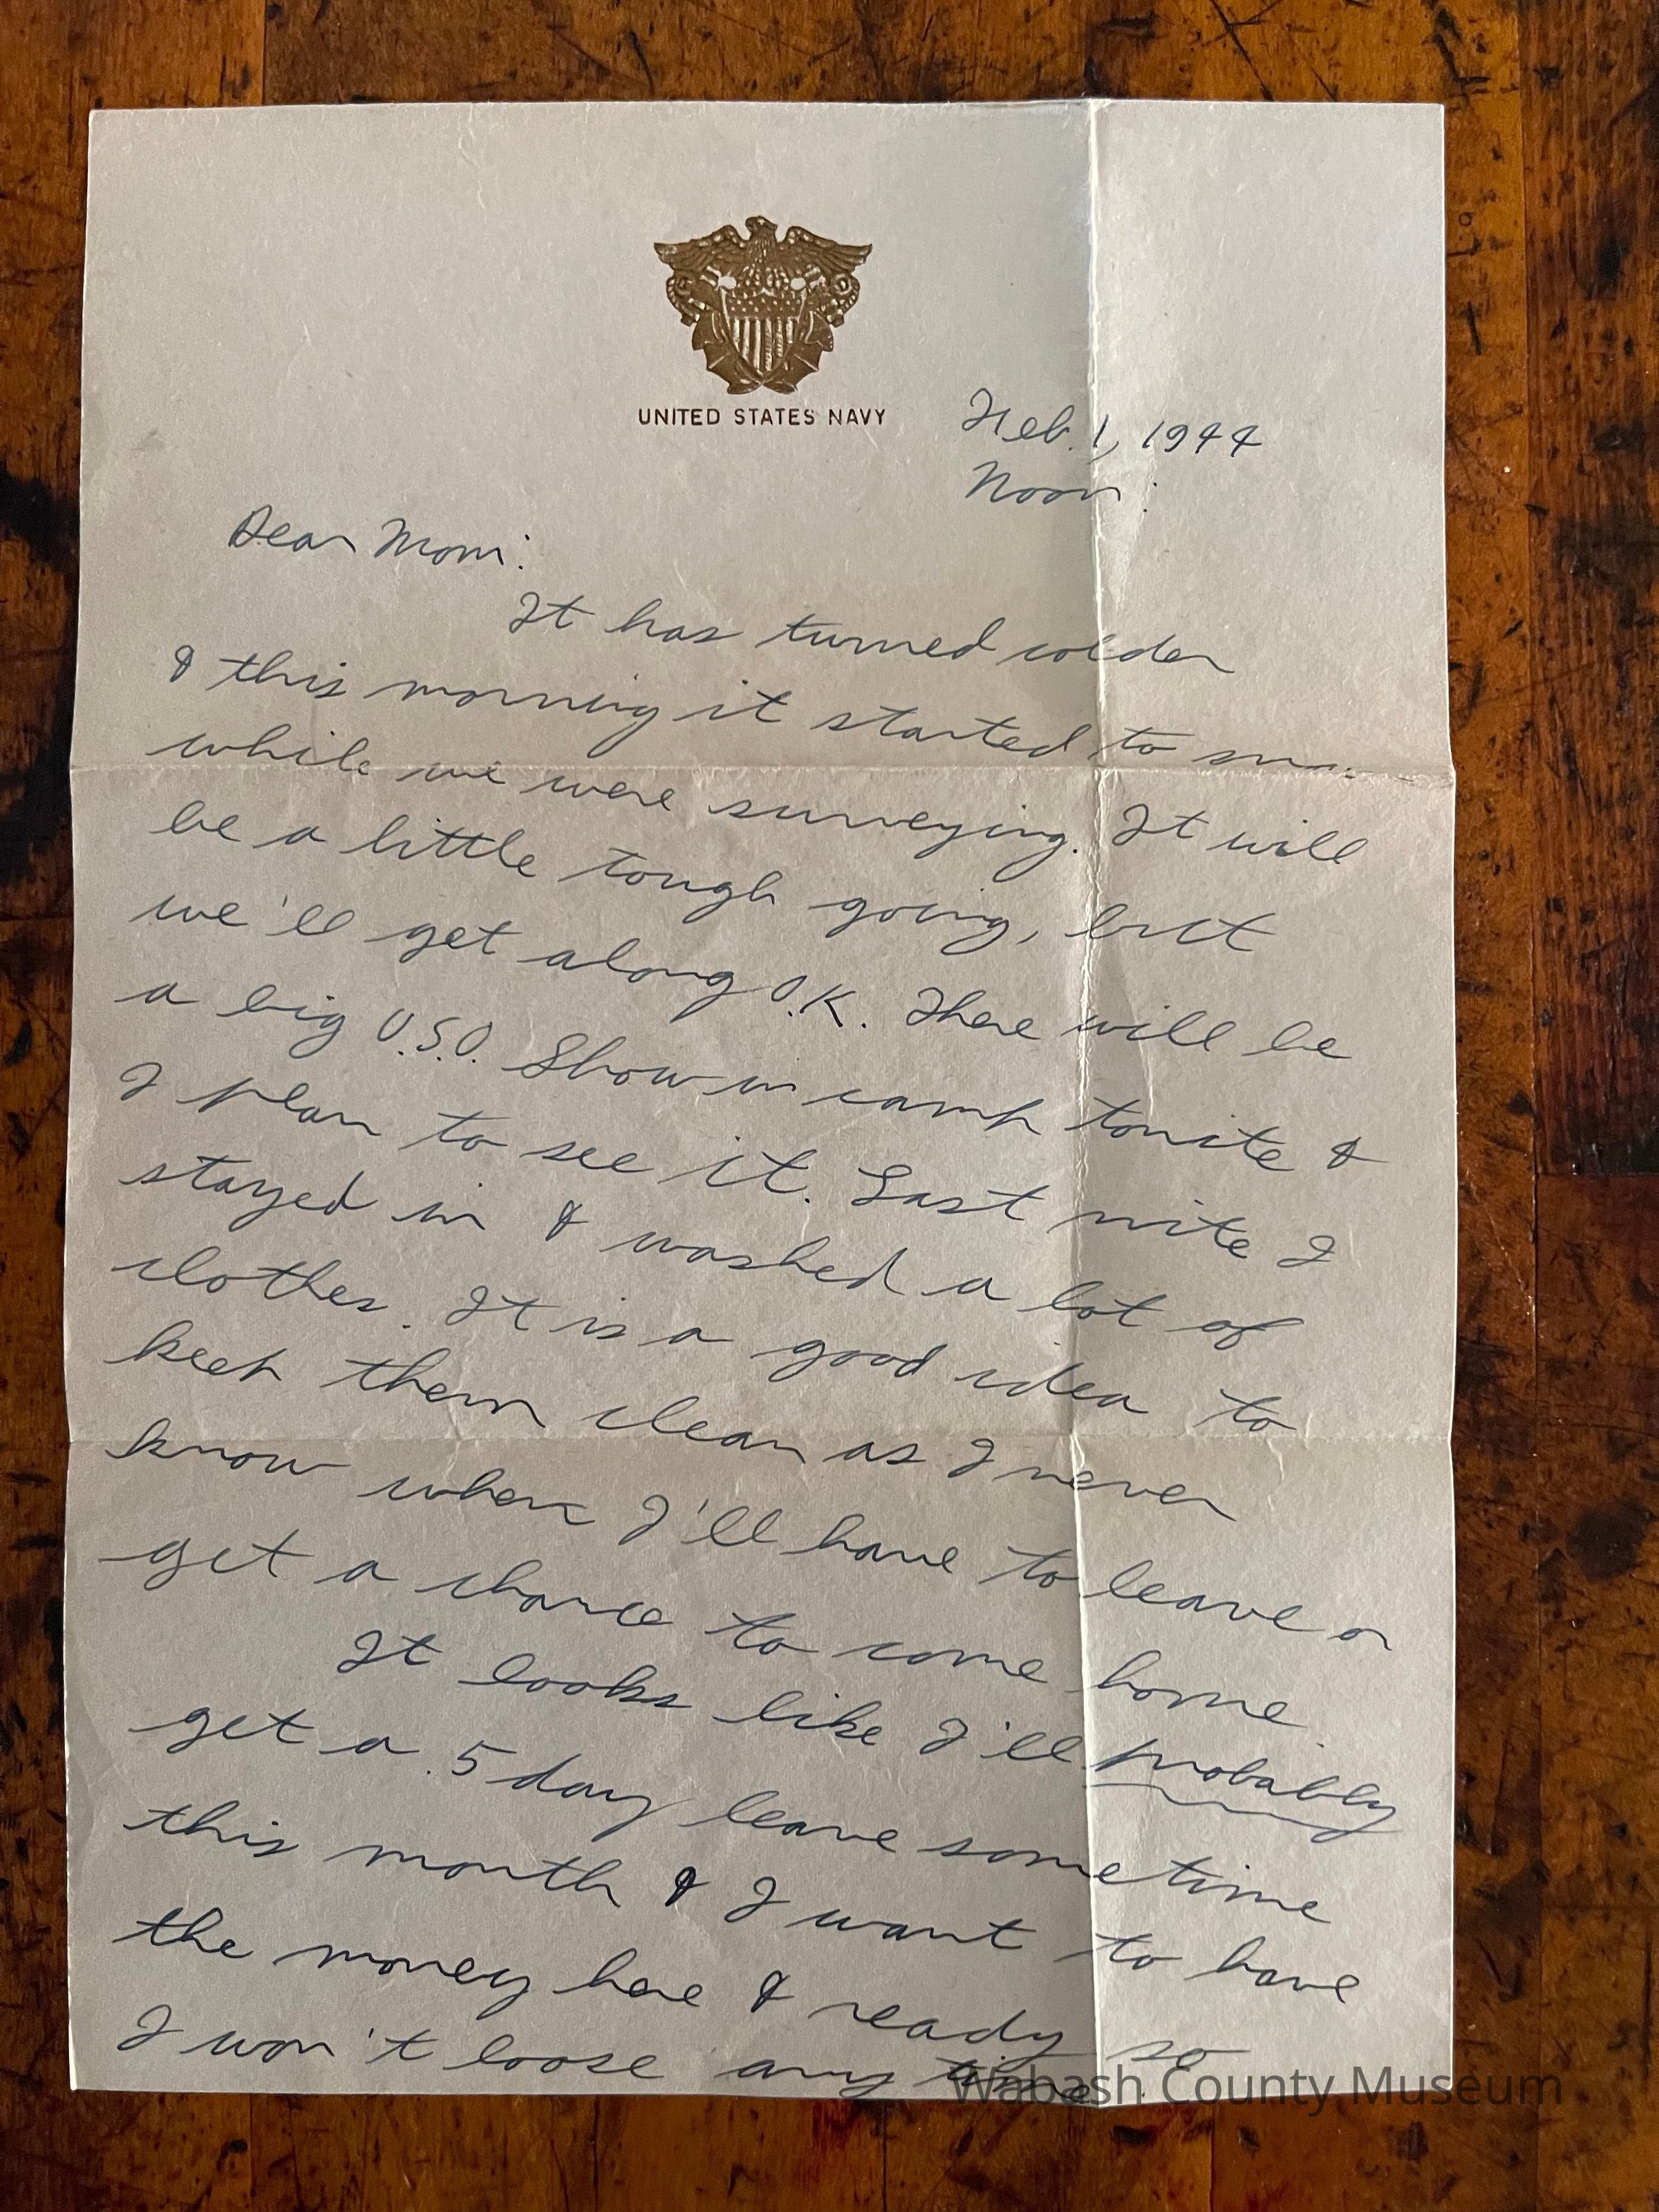 UNITED STATES NAVY
Feb. 1, 1944
Noon:
Dear Mom:
It has turned colder
& this morning it started to
while we were surveying. It will
be a little tough going, but
we'll get along O.K. There will be
a big U.S.O. Show in camp tonite &
I plan to see it. Last nite I
stayed in & washed a lot of
clothes. It is a good idea to
keep them clean as I never
know when I'll have to leave or
get a chance to come home
It looks like I'll probably
get a 5 day leave sometime
this month & I want to have
the money here & ready so
I won't loose any time
Wabash County Museum